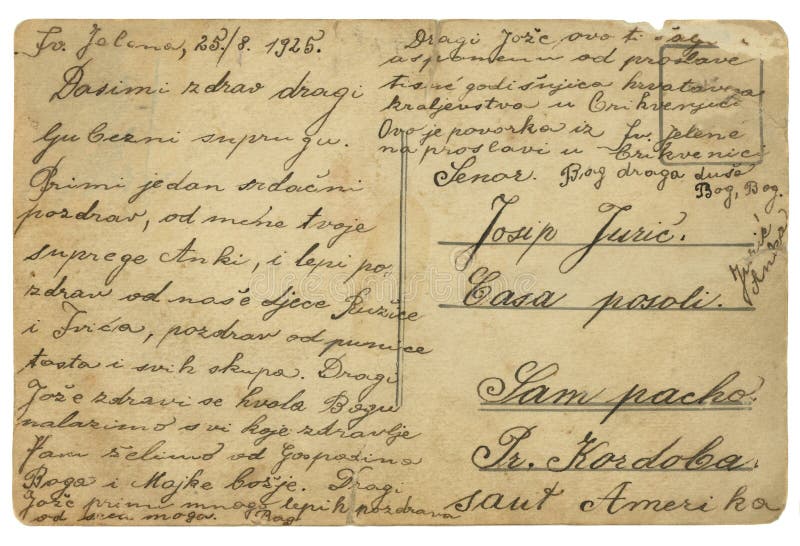 Sv. Jelena, 25./8. 1925.
Dasimi zdrav dragi
ljubezni suprugu.
Primi jedan srdačni
pozdrav, od mene tvoje
suprege Anki, i lepi po-
zdrav od naše djece Ružice
i Ivića, pozdrav od punice
tasta i svih skupa. Dragi
Jože zdravi se hvala Bogu
nalazimo svi koje zdravlje
Vam želimo od Gospodina
Boga i Majke božje. Dragi
Jože primi mnogo lepih pozdrava
od srca moga. Bog
Dragi Jože ovo ti
uspomenu od proslave
tisuć godišnjica
kraljevstva u Crikvenjici
Ovo je povorka iz Sv. Jelene
na proslavi u Crikvenici
Bog draga duše
Bog, Bog.
Jurić
Anka
Senor.
Josip Jurić.
Casa posoli.
Sam pacho.
Pr. Kordoba.
saut Amerika
dreamstime